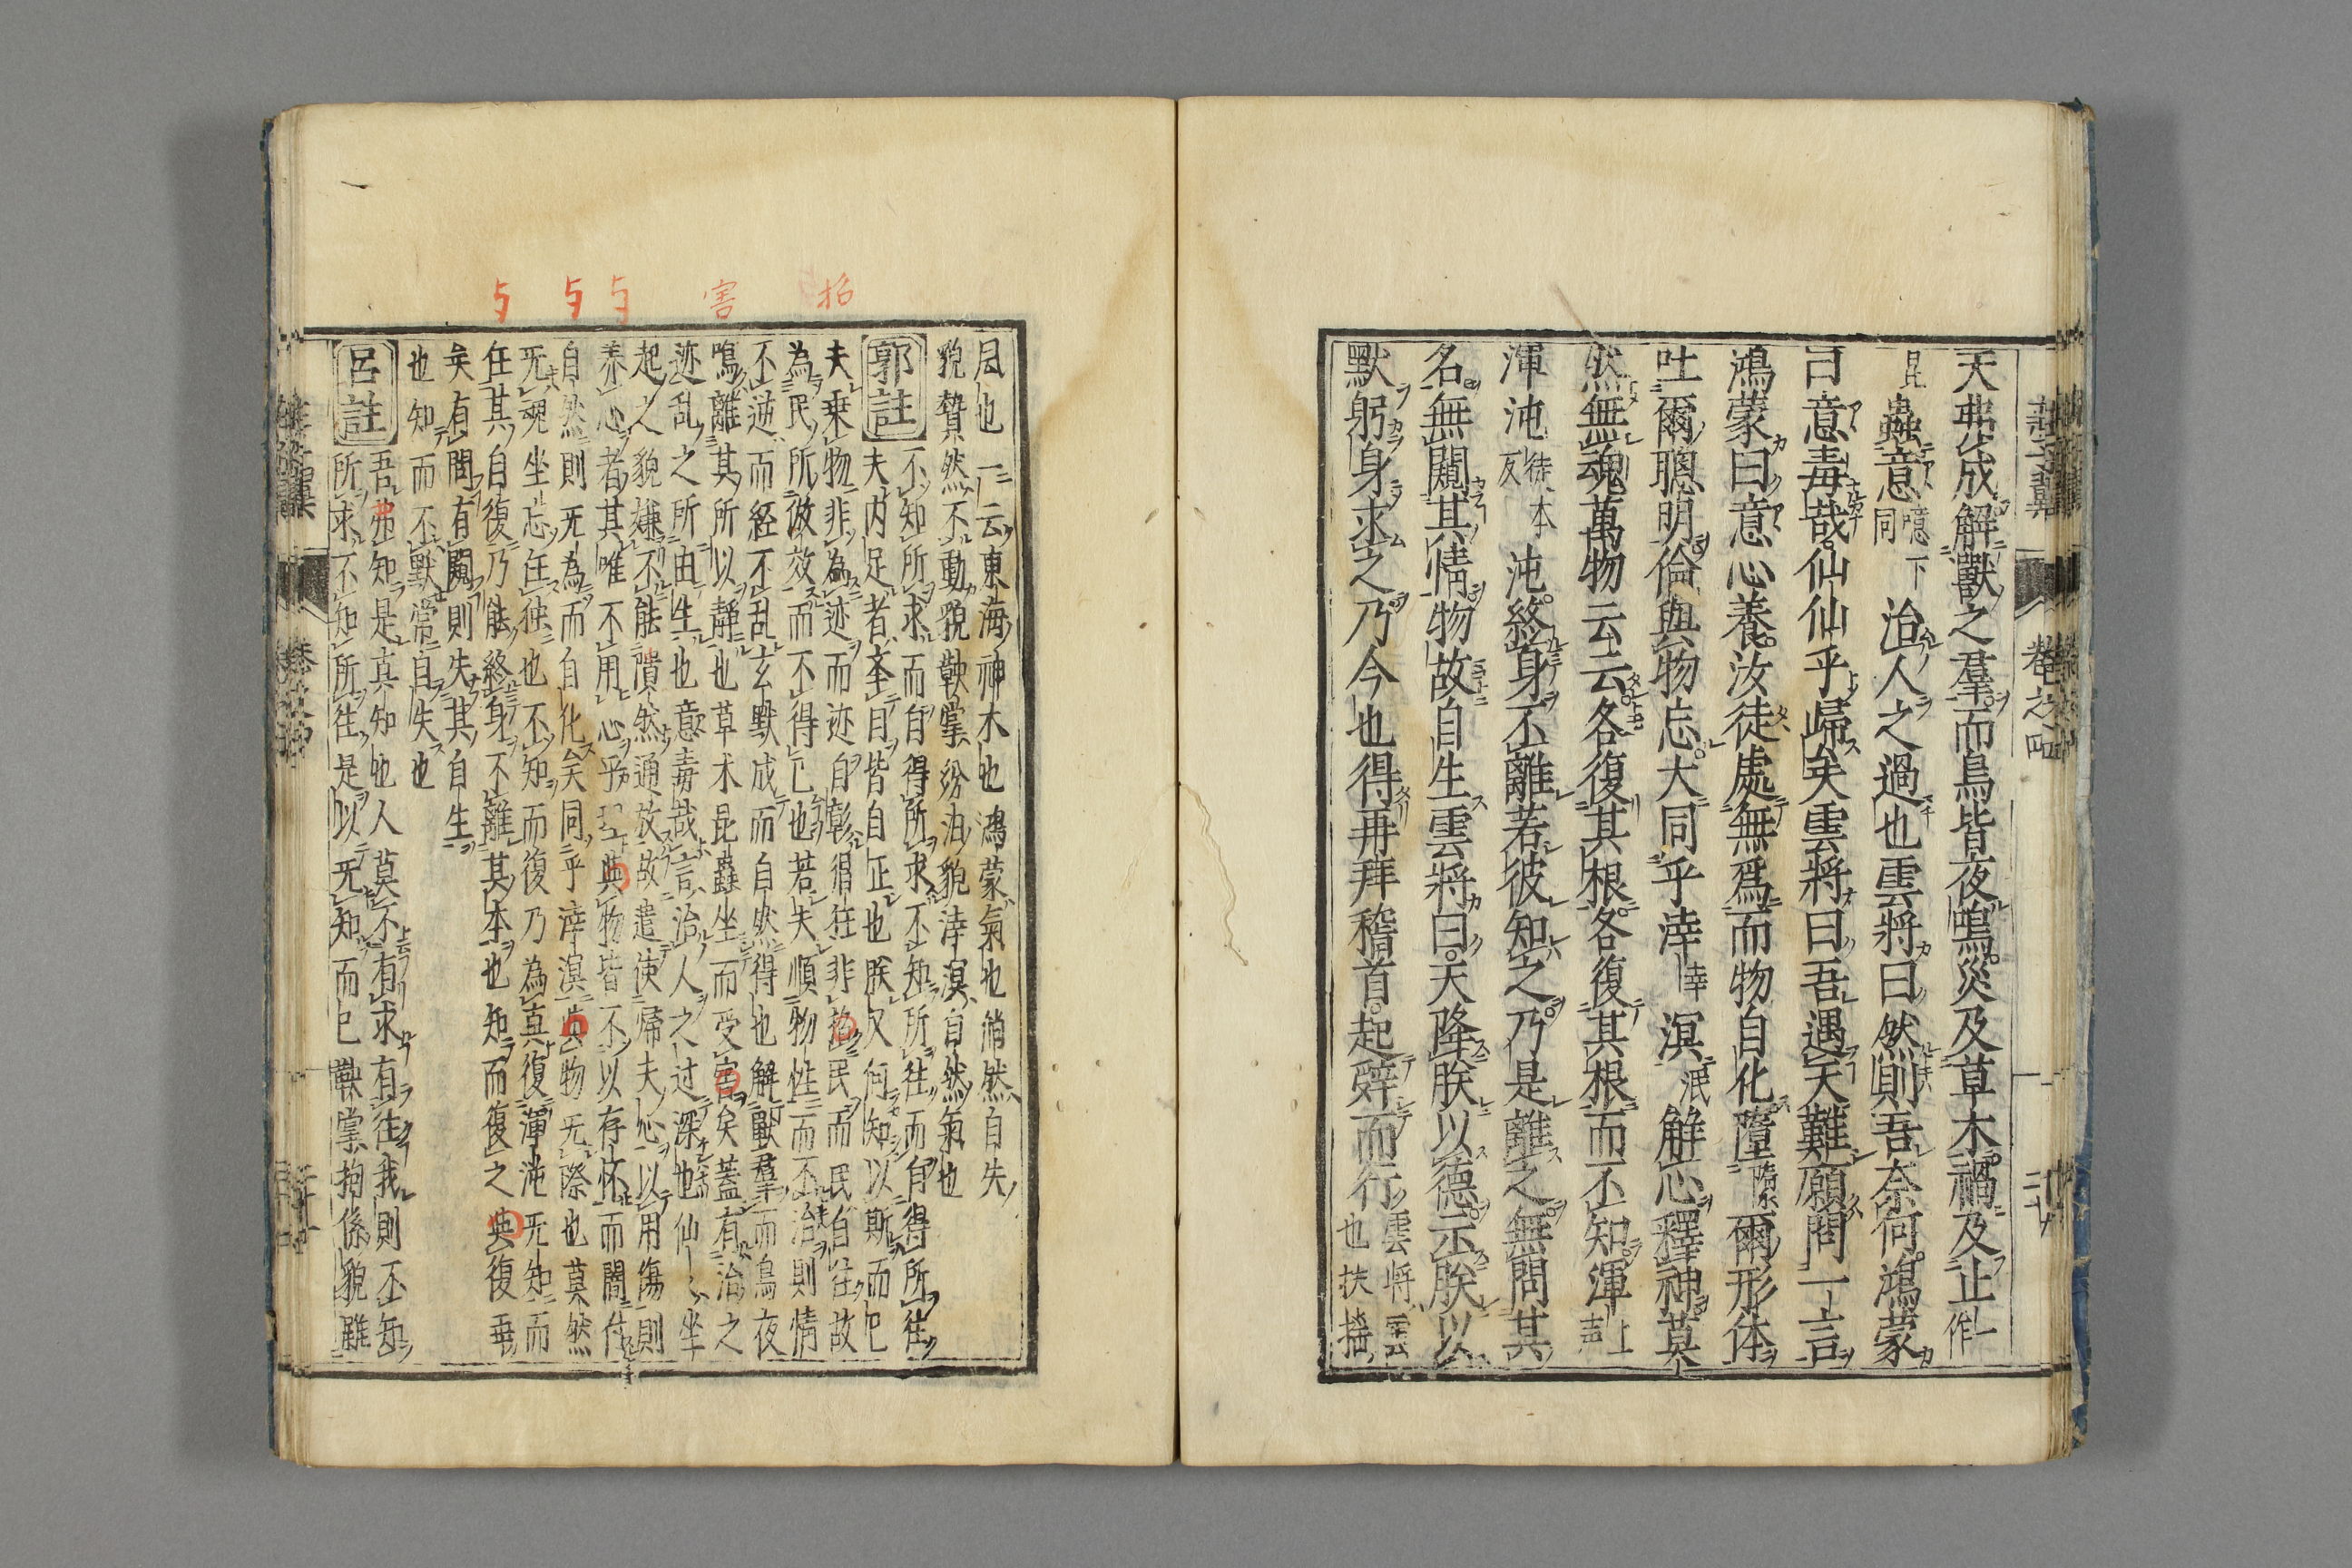 天弗成解獸之羣而鳥皆夜鳴災及草木禍及止一作
昆蟲意噫下同治人之過也雲將曰然則吾奈何鴻蒙
曰意毒哉仙仙乎歸矣雲將曰吾遇天難願聞一言
鴻蒙曰意心養汝徒處無爲而物自化隳爾形体
吐爾聰明倫與物忘大同乎涬幸溟泯解心釋神莫
然無魂萬物云云各復其根各復其根而不知渾上声
渾沌徒本反沌終身不離若彼知之乃是離之無問其
名無闚其情物故自生雲將曰天降朕以德示朕以
默躬身求之乃今也得再拜稽首起辭而行雲將雲也扶搖
風也一云東海神木也鴻蒙氣也倘然自失
貌贄然不動貌鞅掌紛汨貌涬溟自然氣也
郭註不知所求而自得所求不知所往而自得所往
夫内足者羍目皆自正也朕又何知以斯而已
夫乗物非為迹而迹自彰猖狂非招民而民自往故
為民所倣效而不得已也若夫順物性而不治則情
不逆而経不乱玄默成而自然得也解獸羣而鳥夜
鳴離其所以静也草木昆蟲坐而受害矣蓋有治之
迹乱之所由生也意毒哉言治人之过深也仙仙坐
起之貌嫌不能隤然通放故遣使帰夫心以用傷則
养心者其唯不用心乎與物皆不以存怀而闇付
自然則无為而自化矣同乎涬溟與物无際也莫然
无魂坐忘任独也不知而復乃為真復渾沌无知而
任其自復乃能終身不離其本也知而復之與復乖
矣有問有闚則失其自生
也知而不默常自失也
呂註吾弗知是真知也人莫不有求有往我則不知
所求不知所往是以无知而已鞅掌拘係貌雖
卷之四
招
害
与
与
与